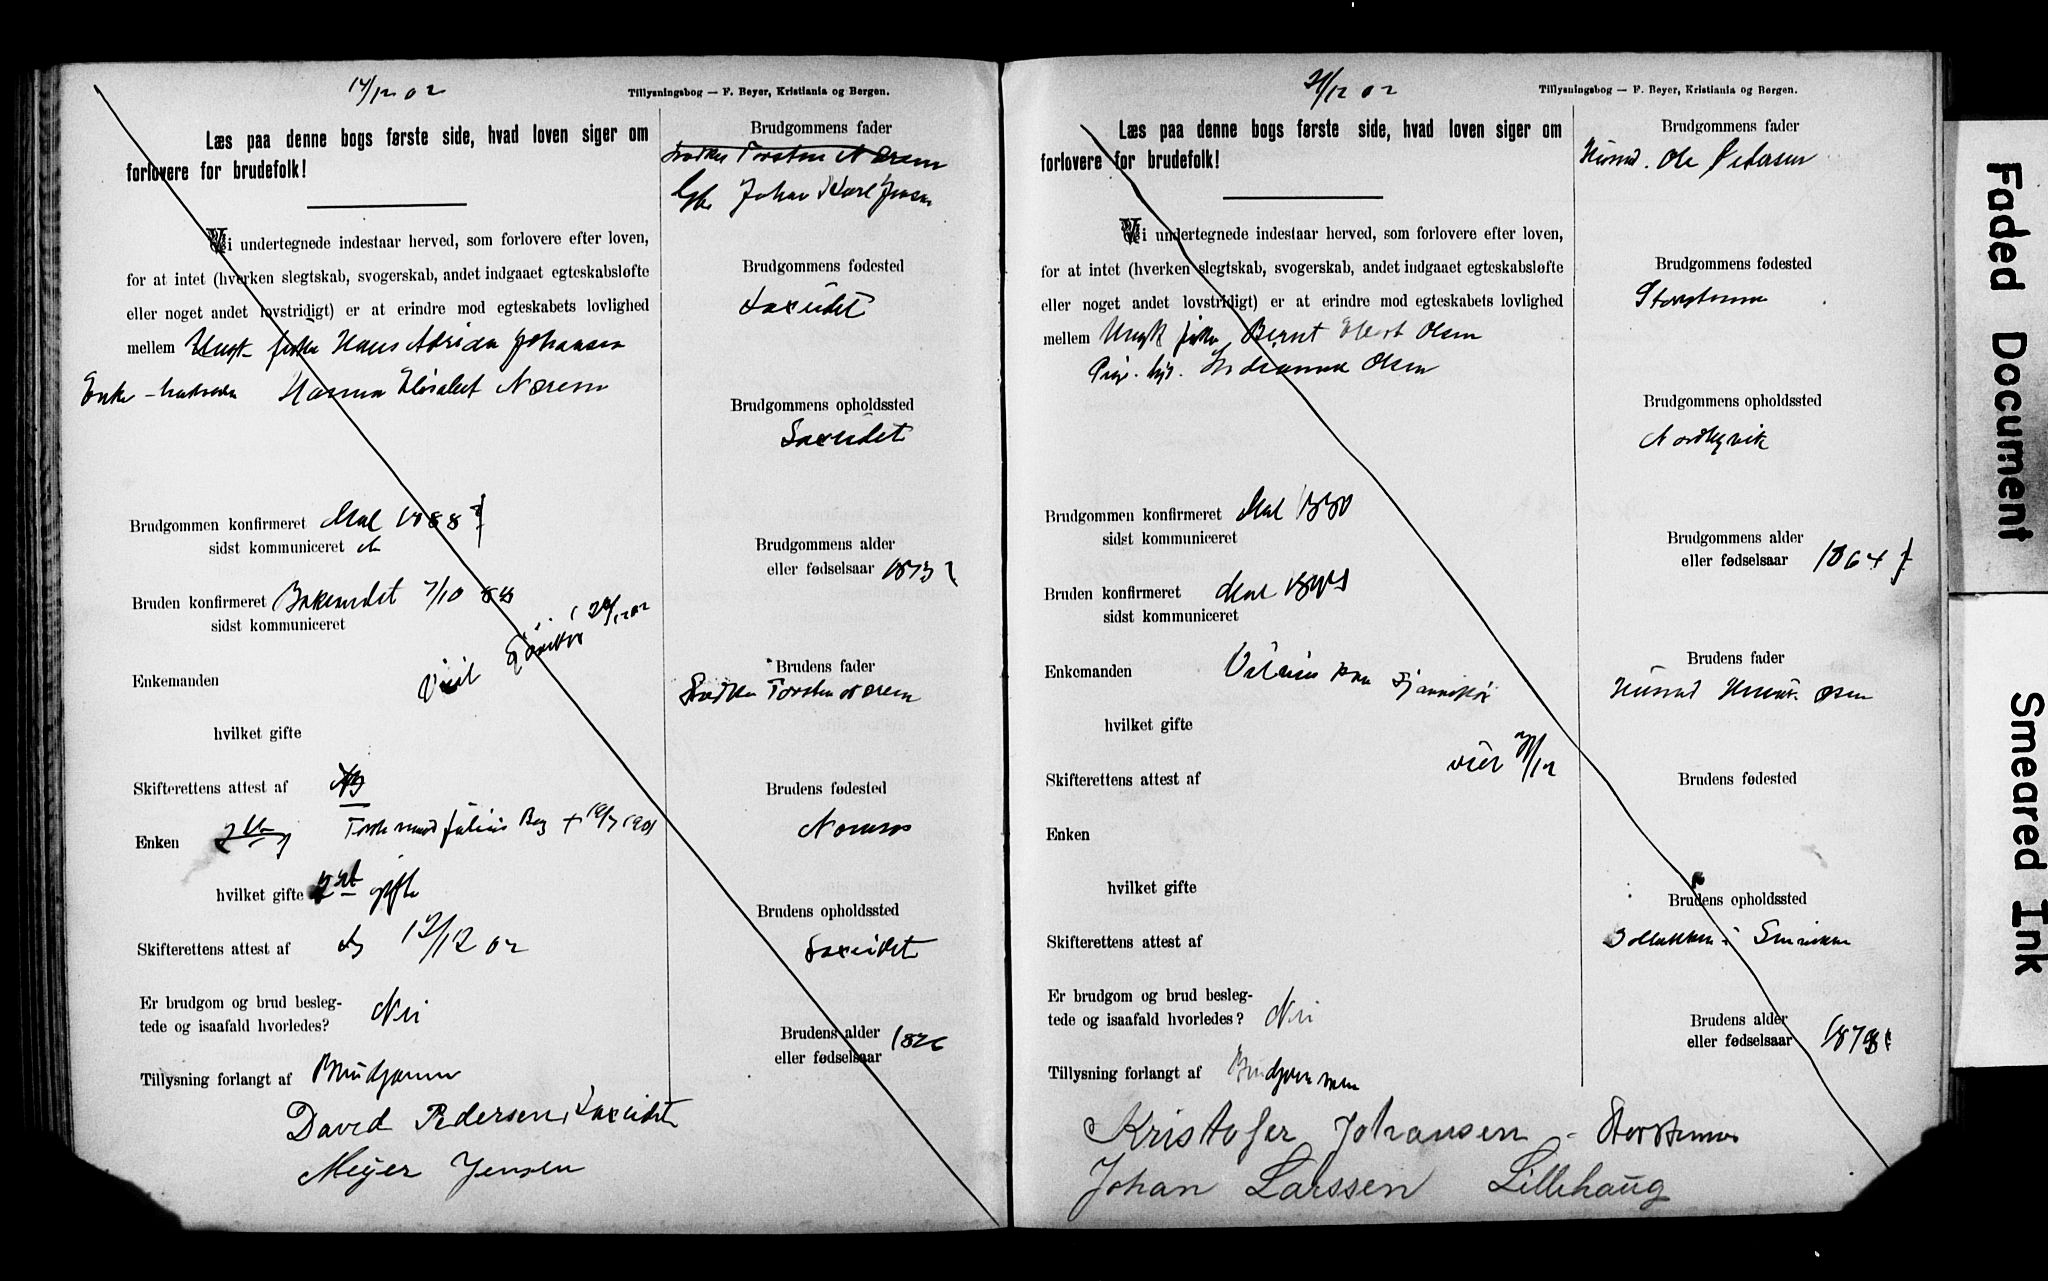 14/12 02
Tillysningsbog — F. Beyer, Kristiania og Bergen.
Læs paa denne bogs første side, hvad loven siger om
forlovere for brudefolk!
Vi undertegnede indestaar herved, som forlovere efter loven,
for at intet (hverken slegtskab, svogerskab, andet indgaaet egteskabsløfte
eller noget andet lovstridigt) er at erindre mod egteskabets lovlighed
mellem Ungk. fisker Hans Adrian Johansen
Enke Hanna Elisabet Nærem
Brudgommen konfirmeret Mal 1888
sidst kommuniceret
Bruden konfirmeret 7/10 88
sidst kommuniceret
Enkemanden
Viet 28/12 02
hvilket gifte
Skifterettens attest af
Enken Julius Berg + 19/7 1901
hvilket gifte 2det gifte
Skifterettens attest af 12/12 02
Er brudgom og brud besleg-
tede og isaafald hvorledes? Nei
Tillysning forlangt af Brudgommen
David Pedersen, Laxeidet
Meyer Jensen
Brudgommens fader
Torsten Nærem
Johan Karl Jensen
Brudgommens fødested
Laxeidet
Brudgommens opholdssted
Laxeidet
Brudgommens alder
eller fødselsaar 1873
Brudens fader
Torsten Nærem
Brudens fødested
Brudens opholdssted
Laxeidet
Brudens alder
eller fødselsaar 1876
21/12 02
Tillysningsbog — F. Beyer, Kristiania og Bergen.
Læs paa denne bogs første side, hvad loven siger om
forlovere for brudefolk!
Vi undertegnede indestaar herved, som forlovere efter loven,
for at intet (hverken slegtskab, svogerskab, andet indgaaet egteskabsløfte
eller noget andet lovstridigt) er at erindre mod egteskabets lovlighed
mellem Ungk fisker Bernt Ebert Olsen
Pige Indianna Olsen
Brudgommen konfirmeret Mal 1880
sidst kommuniceret
Bruden konfirmeret Mal
sidst kommuniceret
Enkemanden
hvilket gifte
viet
Skifterettens attest af
Enken
hvilket gifte
Skifterettens attest af
Er brudgom og brud besleg-
tede og isaafald hvorledes? Nei
Tillysning forlangt af Brudgommen
Kristofer Johansen - Storstennes
Johan Larssen Lillehaug
Brudgommens fader
Husmd. Ole Pedersen
Brudgommens fødested
Storstennes
Brudgommens opholdssted
Brudgommens alder
eller fødselsaar 1864
Brudens fader
Husmd Olsen
Brudens fødested
Brudens opholdssted
Brudens alder
eller fødselsaar 1878
Faded Document
Smeared Ink